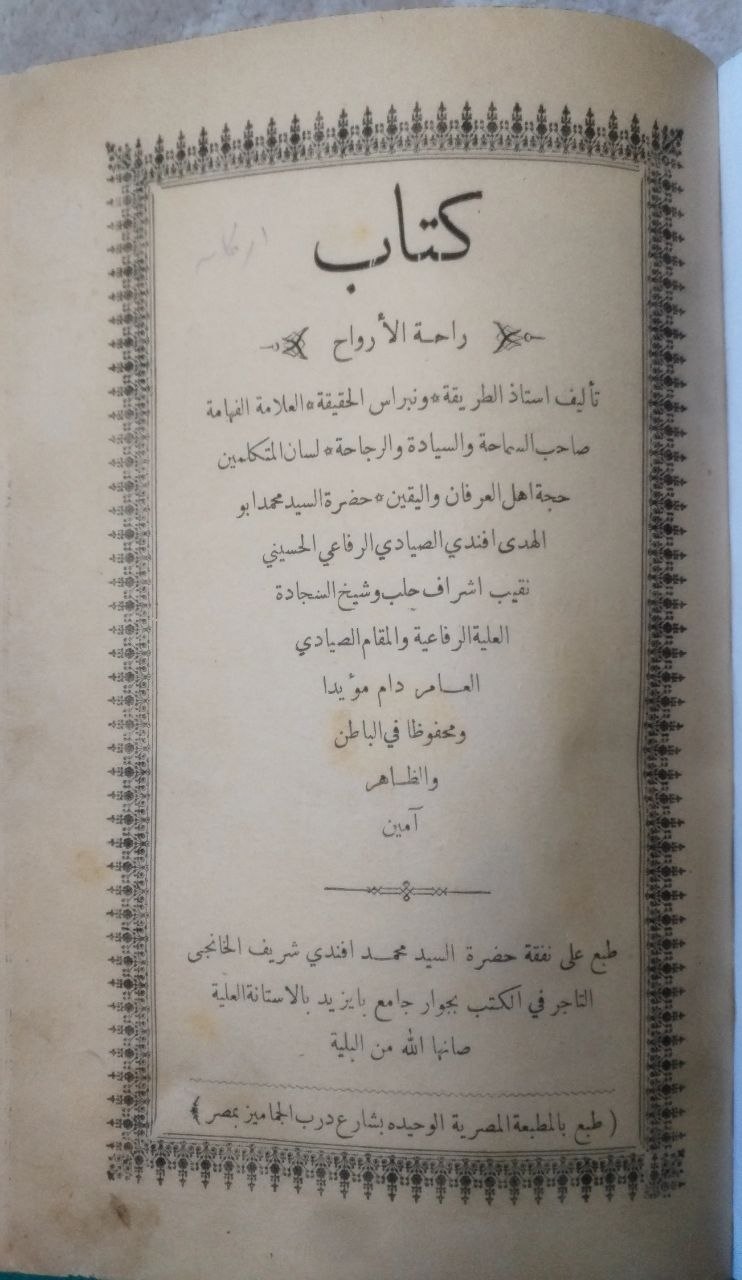 كتاب
راحة الأرواح
تأليف استاذ الطريقة * ونبراس الحقيقة * العلامة الفهامة
صاحب السماحة والسيادة والرجاحة * لسان المتكلمين
حجة اهل العرفان واليقين * حضرة السيد محمد ابو
الهدى افندي الصيادي الرفاعي الحسيني
نقيب اشراف حلب وشيخ السجادة
العلية الرفاعية والمقام الصيادي
العامر دام مؤيدا
ومحفوظا في الباطن
والظاهر
آمين
طبع على نفقة حضرة السيد محمد افندي شريف الخانجى
التاجر في الكتب بجوار جامع بايزيد بالاستانة العلية
صانها الله من البلية
( طبع بالمطبعة المصرية الوحيده بشارع درب الجماميز بمصر )